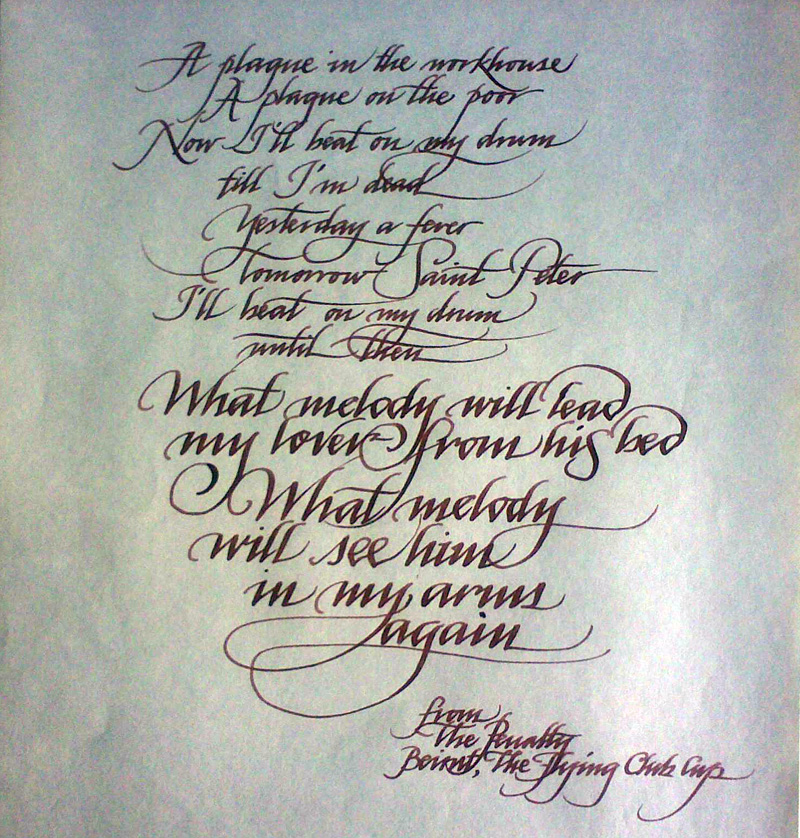 A plague in the workhouse
A plague on the poor
Now I'll beat on my drum
till I'm dead
Yesterday a fever
tomorrow Saint Peter
I'll beat on my drum
until then
What melody will lead
my lover from his bed
What melody
will see him
in my arms
again
from
The Penalty
Beirut, The Flying Club Cup